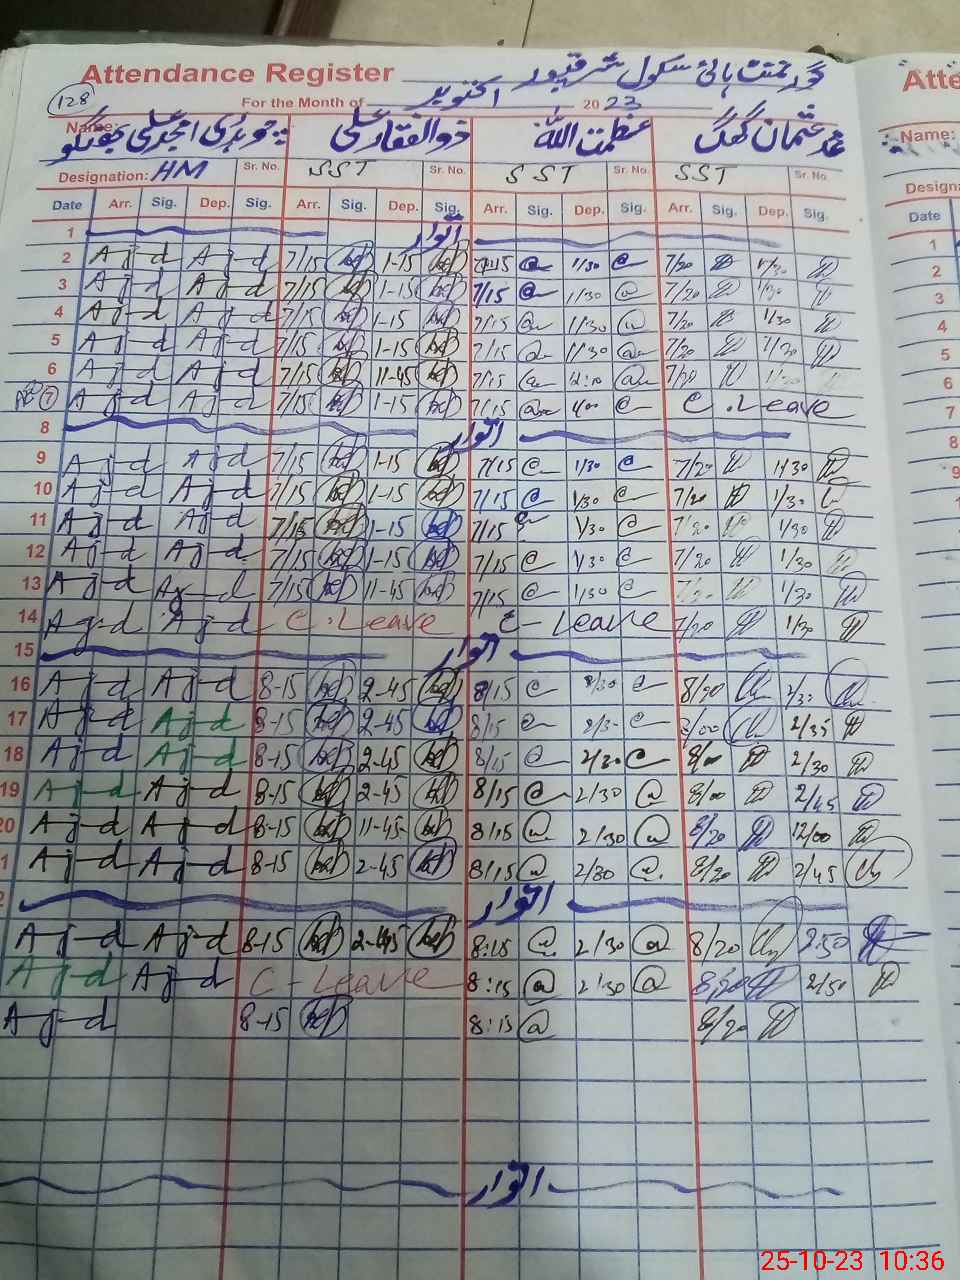 Attendance Register گورنمنٹ ہائی سکول شرقپور
128 For the Month of اکتوبر 2023
Name: چوہدری امجد علی ذوالفقار علی عظمت اللہ محمد عثمان
Designation: HM Sr. No. SST Sr. No. SST Sr. No. SST Sr. No.
Date Arr. Sig. Dep. Sig. Arr. Sig. Dep. Sig. Arr. Sig. Dep. Sig. Arr. Sig. Dep. Sig.
1 اتوار
2 Aj-d Aj-d 7/15 1-15 7/15 1/30 7/20 1/30
3 Aj-d Aj-d 7/15 1-15 7/15 1/30 7/20 1/30
4 Aj-d Aj-d 7/15 1-15 7/15 1/30 7/20 1/30
5 Aj-d Aj-d 7/15 1-15 7/15 1/30 7/20 1/30
6 Aj-d Aj-d 7/15 11-45 7/15 12:10 7/20
7 Aj-d Aj-d 7/15 1-15 7/15 C. Leave
8 اتوار
9 Aj-d Aj-d 7/15 1-15 7/15 1/30 7/20 1/30
10 Aj-d Aj-d 7/15 1-15 7/15 1/30 7/20 1/30
11 Aj-d Aj-d 7/15 1-15 7/15 1/30 7/20 1/30
12 Aj-d Aj-d 7/15 1-15 7/15 1/30 7/20 1/30
13 Aj-d Aj-d 7/15 11-45 7/15 1/30 7/20 1/30
14 Aj-d Aj-d C. Leave C- Leave 7/20 1/30
15 اتوار
16 Aj-d Aj-d 8-15 2-45 8/15 8/20 2/30
17 Aj-d Aj-d 8-15 2-45 8/15 8/00 2/35
18 Aj-d Aj-d 8-15 2-45 8/15 2/30 8/00 2/30
19 Aj-d Aj-d 8-15 2-45 8/15 2/30 8/00 2/45
20 Aj-d Aj-d 8-15 11-45 8/15 2/30 8/20 12/00
1 Aj-d Aj-d 8-15 2-45 8/15 2/30 8/20 2/45
2 اتوار
Aj-d Aj-d 8-15 2-45 8:15 2/30 8/20 2:50
Aj-d Aj-d C- Leave 8:15 2/30 8/20 2/50
Aj-d 8-15 8:15 8/20
اتوار
Atte
Name:
Designa
Date
1
2
3
4
5
6
7
8
9
25-10-23 10:36